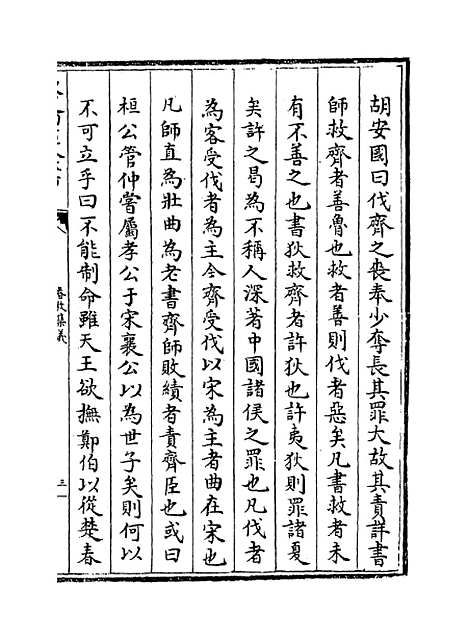 胡安國曰伐齊之喪奉少奪長其罪大故其責詳書
師救齊者善魯也救者善則伐者惡矣凡書救者未
有不善之也書狄救齊者許狄也許夷狄則罪諸夏
矣許之曷為不稱人深著中國諸侯之罪也凡伐者
為客受伐者為主今齊受伐以宋為主者曲在宋也
凡師直為壯曲為老書齊師敗績者責齊臣也或曰
桓公管仲嘗屬孝公于宋襄公以為世子矣則何以
不可立乎曰不能制命雖天王欲撫鄭伯以從楚春
春秋集義
三